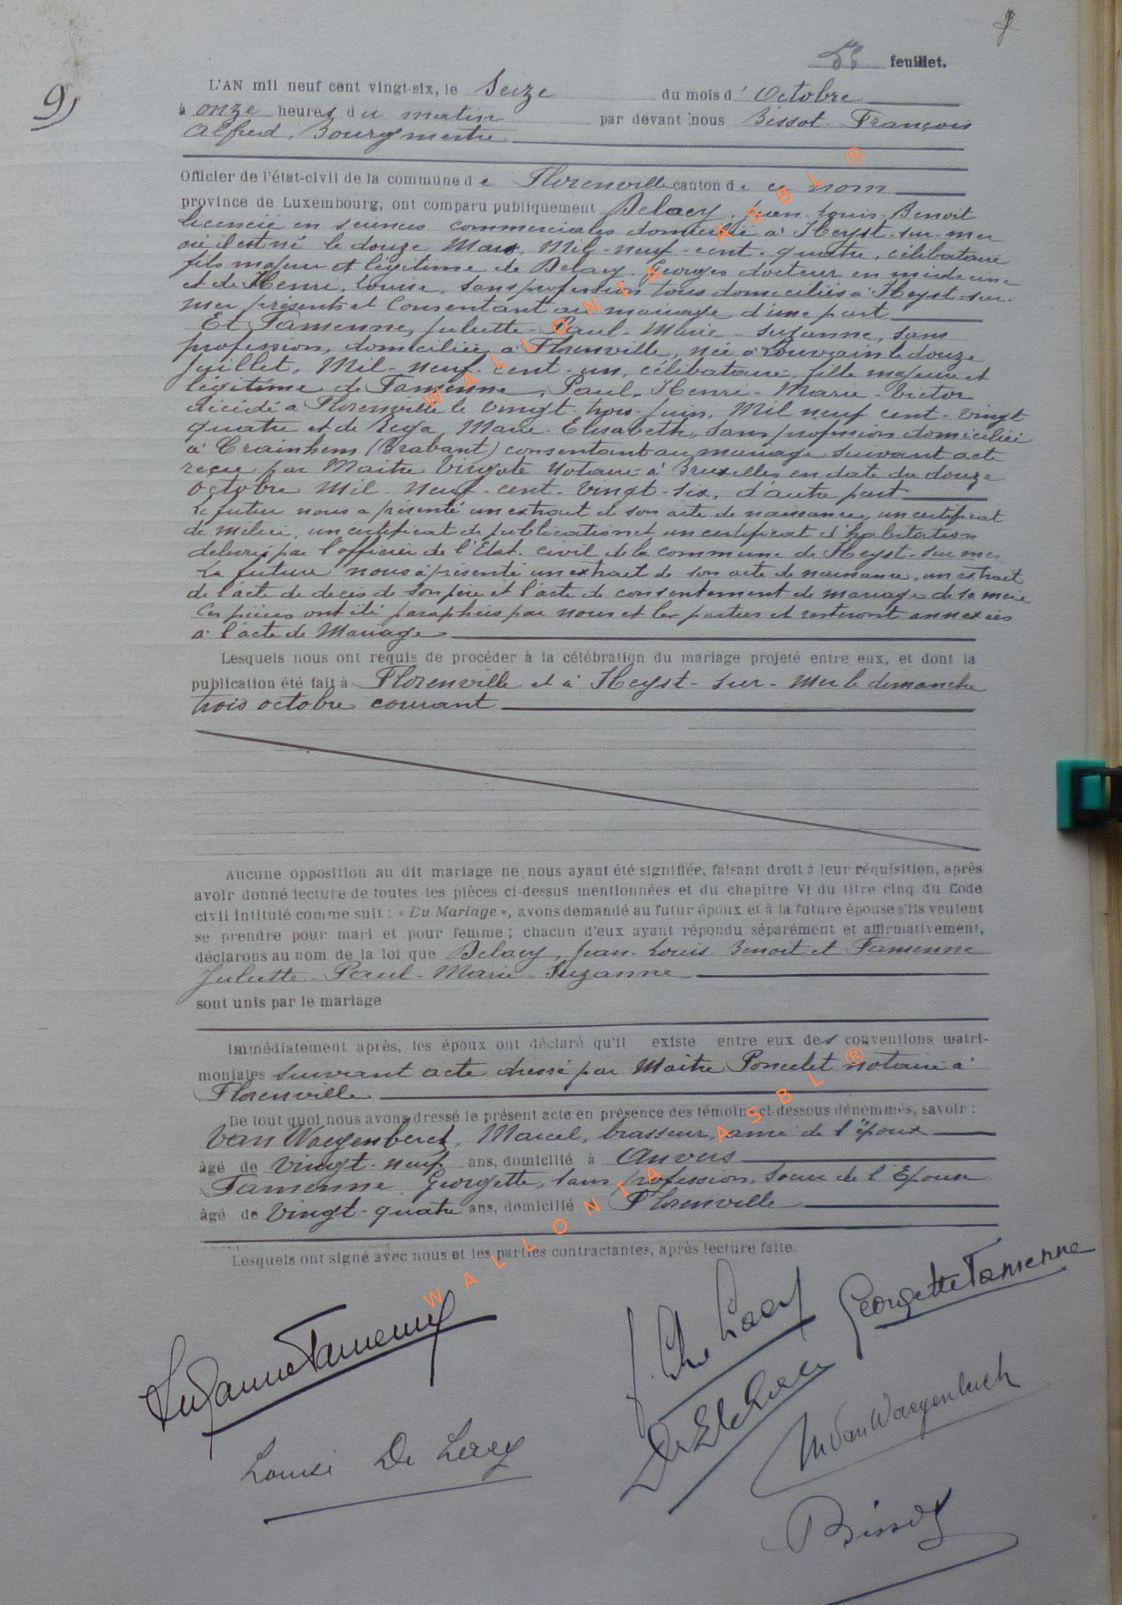 56 feuillet.
9)
L'AN mil neuf cent vingt-six, le Seize du mois d' Octobre
à onze heures du matin par devant nous Bissot François
Alfred, Bourgmestre
Officier de l'état-civil de la commune de Florenville canton de ce nom
province de Luxembourg, ont comparu publiquement Delacy, Jean-Louis-Benoit
licencié en sciences commerciales domicilié à Heyst-sur-mer
où il est né le douze Mars, Mil-neuf-cent-quatre, célibataire
fils majeur et légitime de Delacy Georges docteur en médecine
et de Henri, Louise, sans profession tous domiciliés à Heyst-sur-
mer présents et consentant au mariage d'une part
Et Tamenne, Juliette-Paul-Marie-Suzanne, sans
profession, domiciliée à Florenville, née à Louvain le douze
Juillet, Mil-neuf-cent-un, célibataire, fille majeure et
légitime de Tamenne, Paul-Henri-Marie-Victor
décédé à Florenville le vingt-trois-Juin, Mil neuf cent-vingt
quatre et de Rega, Marie-Elisabeth, sans profession domiciliée
à Crainhem (Brabant) consentant au mariage suivant acte
reçu par Maitre notaire à Bruxelles en date du douze
Octobre Mil-neuf-cent-vingt-six, d'autre part
Le futur nous a présenté un extrait de son acte de naissance, un certificat
de milice, un certificat de publication et un certificat d'habitation
délivrés par l'officier de l'Etat-civil de la commune de Heyst-sur-mer
La future nous a présenté un extrait de son acte de naissance, un extrait
de l'acte de décès de son père et l'acte de consentement de mariage de sa mère
Ces pièces ont été paraphées par nous et les parties et resteront annexées
à l'acte de Mariage
Lesquels nous ont requis de procéder à la célébration du mariage projeté entre eux, et dont la
publication été fait à Florenville et à Heyst-sur-Mer le dimanche
trois octobre courant
Aucune opposition au dit mariage ne nous ayant été signifiée, faisant droit à leur réquisition, après
avoir donné lecture de toutes les pièces ci-dessus mentionnées et du chapitre VI du titre cinq du Code
civil intitulé comme suit : « Du Mariage », avons demandé au futur époux et à la future épouse s'ils veulent
se prendre pour mari et pour femme ; chacun d'eux ayant répondu séparément et affirmativement,
déclarons au nom de la loi que Delacy, Jean-Louis Benoit et Tamenne
Juliette-Paul-Marie-Suzanne
sont unis par le mariage
Immédiatement après, les époux ont déclaré qu'il existe entre eux des conventions matri-
moniales suivant acte dressé par Maitre Poncelet notaire à
Florenville
De tout quoi nous avons dressé le présent acte en présence des témoins ci-dessous dénommés, savoir :
Van Waegenberch, Marcel, brasseur, ami de l'époux
âgé de vingt-neuf ans, domicilié à Anvers
Tamenne Georgette, sans profession, soeur de l'Epouse
âgé de vingt-quatre ans, domicilié à Florenville
Lesquels ont signé avec nous et les parties contractantes, après lecture faite.
Georgette Tamenne
Suzanne Tamenne
M Van Waegenberch
Louise De Lacy
Bissot
WALLONIA ASBL ®
WALLONIA ASBL ®